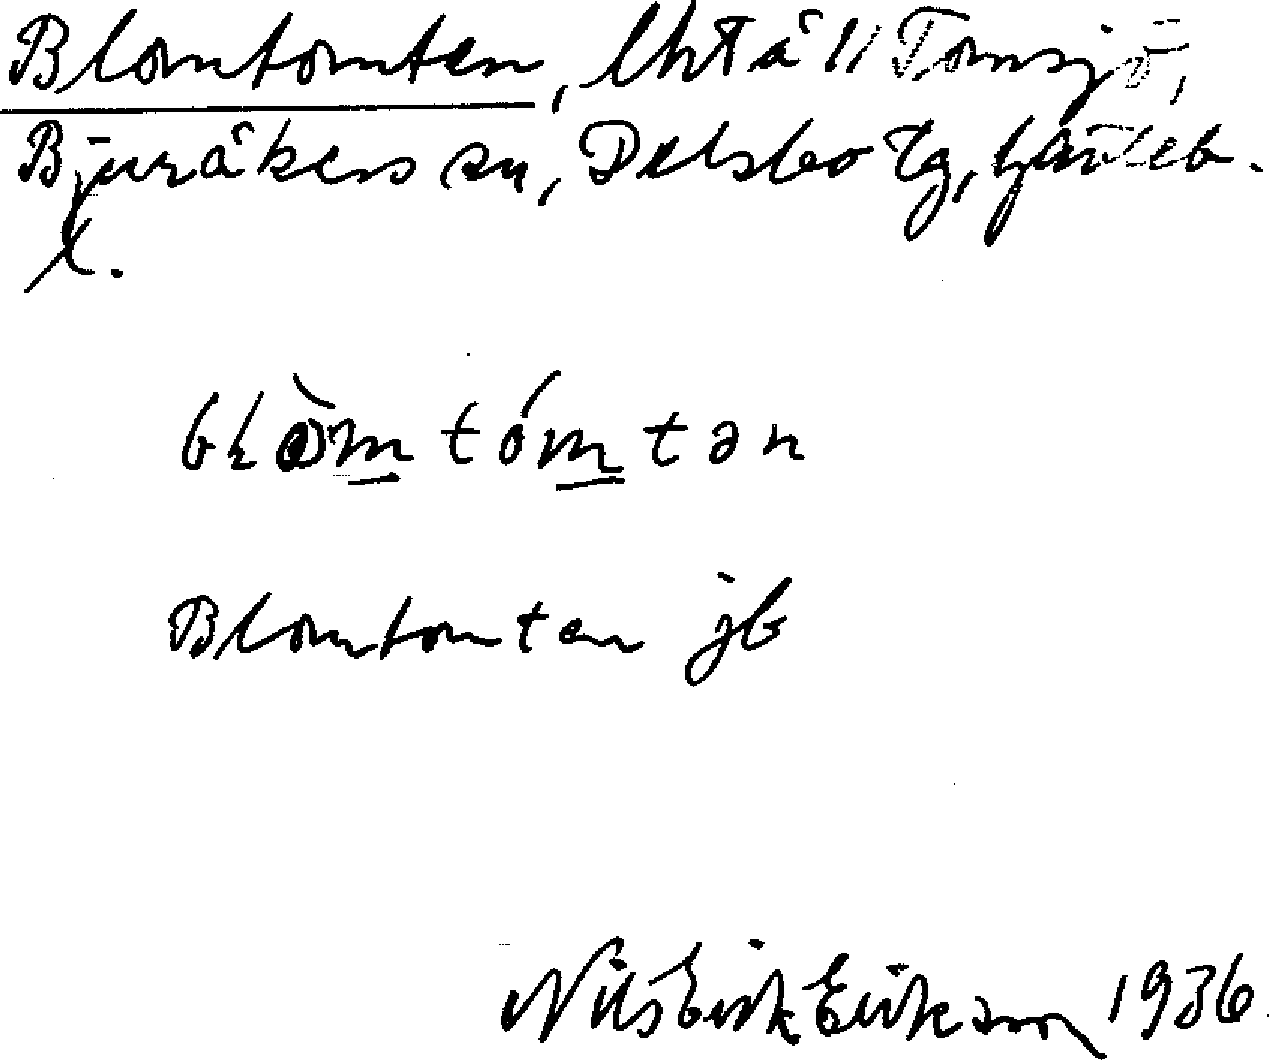 Blomtomten, lht å 1/1 Tomsjö,
Bjuråkers sn, Delsbo tg, Gävleb.
l.
blòmtómtən
Blomtomten jb
Nils Erik Eriksson 1936.